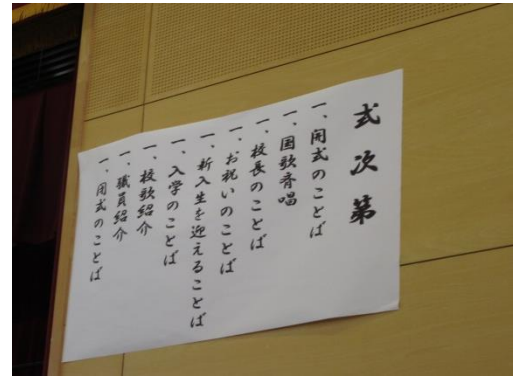 式次第
一、開式のことば
一、国歌斉唱
一、校長のことば
一、お祝いのことば
一、新入生を迎えることば
一、入学のことば
一、校歌紹介
一、職員紹介
一、閉式のことば